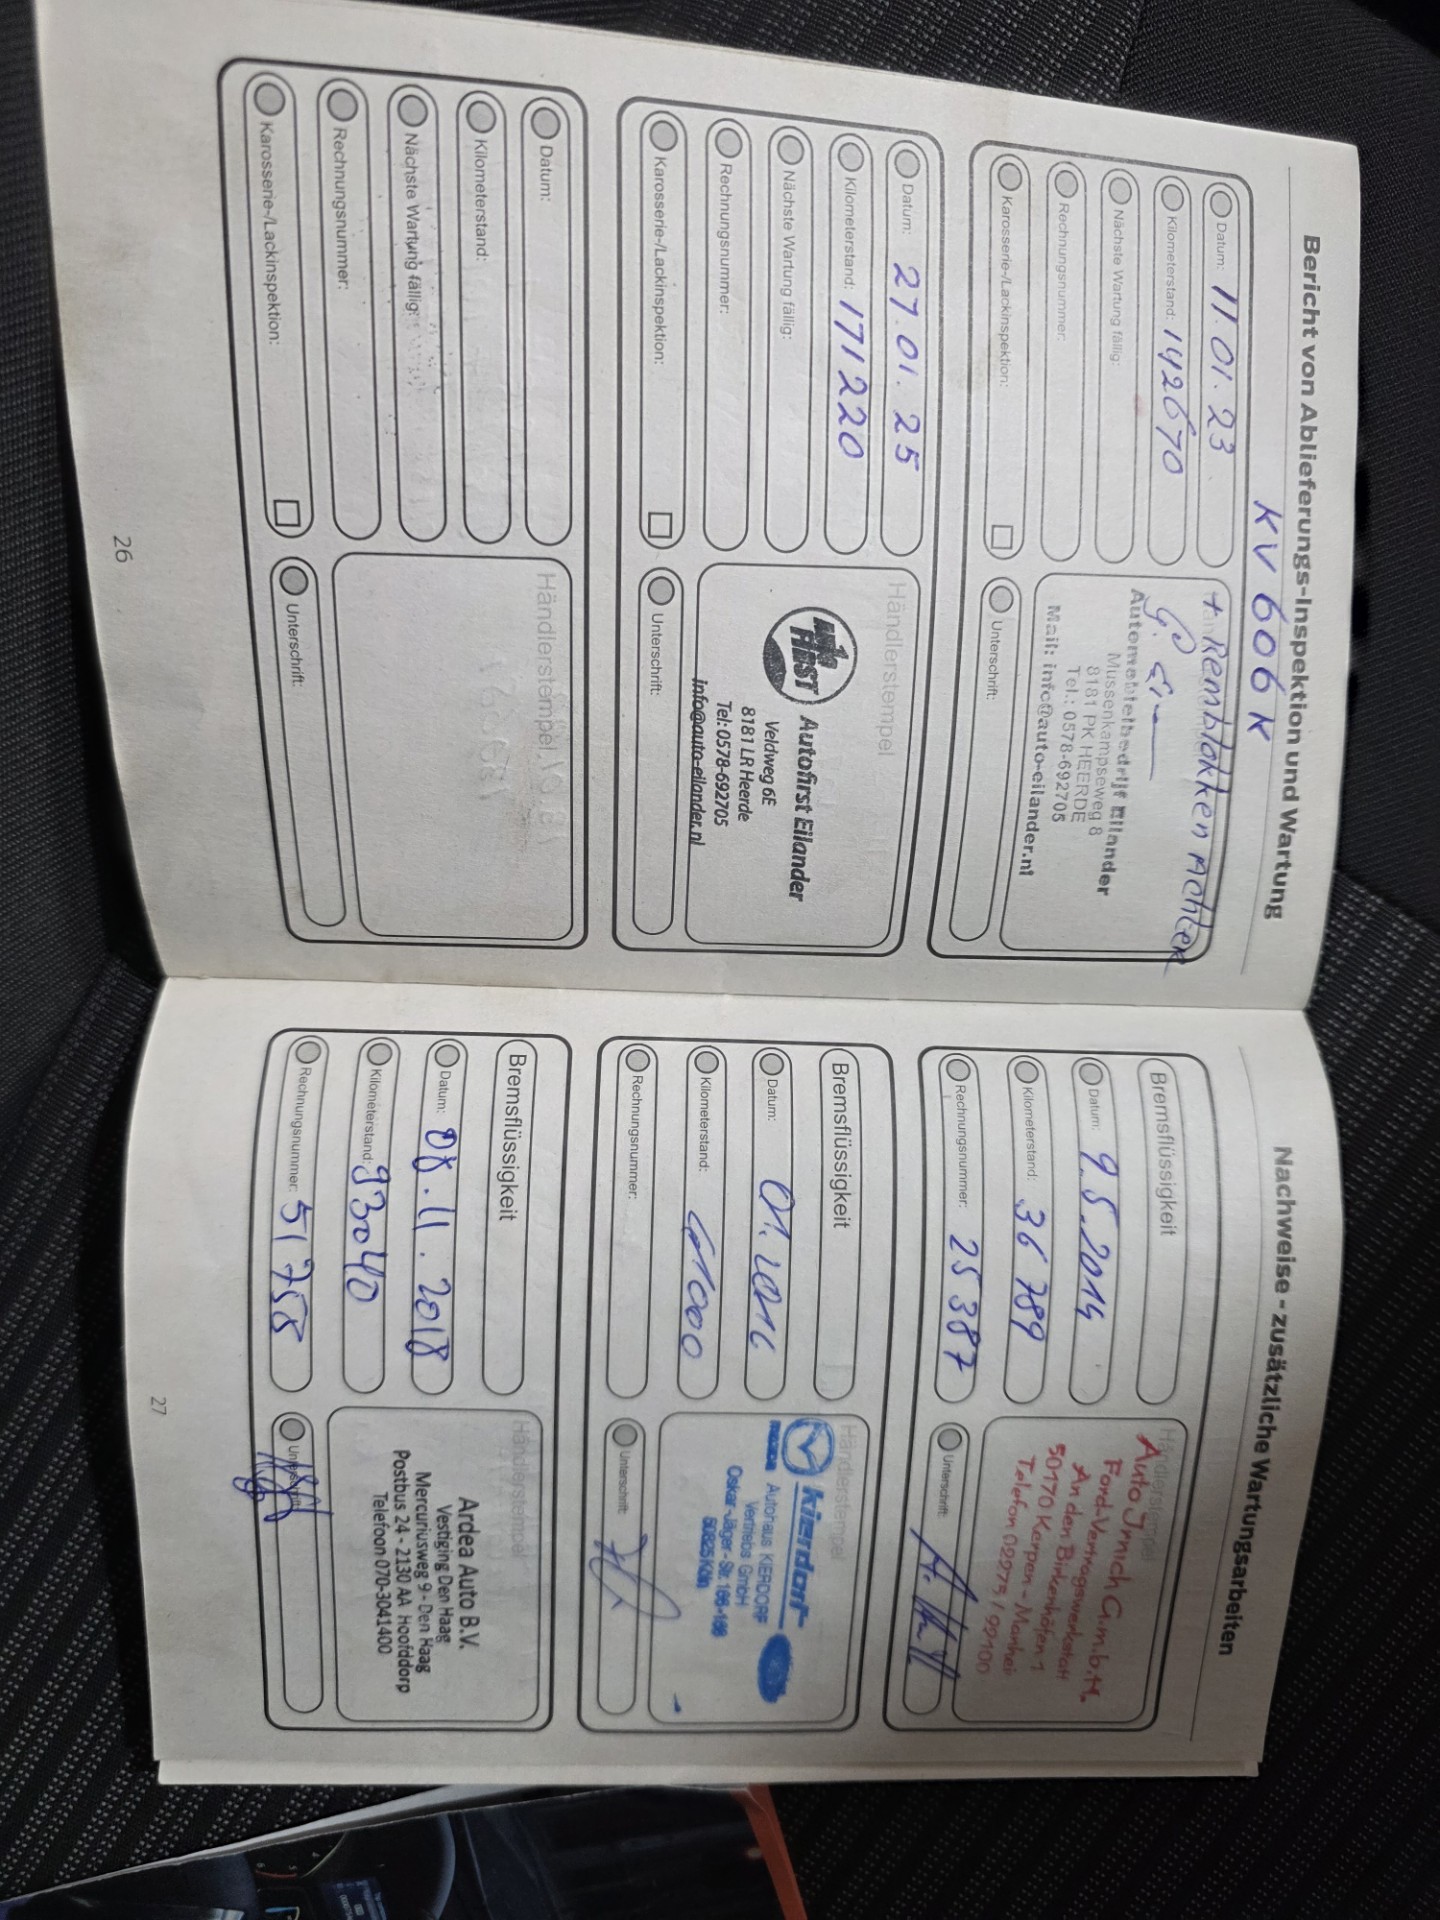 Bericht von Ablieferungs-Inspektion und Wartung
KV 606 K
Datum: 11.01.23
Kilometerstand: 142670
Nächste Wartung fällig:
Rechnungsnummer:
Karosserie-/Lackinspektion:
+ Remblokken Achter
Automobielbedrijf Eilander
Mussenkampseweg 8
8181 PK HEERDE
Tel.: 0578-692705
Mail: info@auto-eilander.nl
Unterschrift:
Datum: 27.01.25
Kilometerstand: 171220
Nächste Wartung fällig:
Rechnungsnummer:
Karosserie-/Lackinspektion:
Händlerstempel
FIRST
Autofirst Eilander
Veldweg 6E
8181 LR Heerde
Tel: 0578-692705
info@auto-eilander.nl
Unterschrift:
Datum:
Kilometerstand:
Nächste Wartung fällig:
Rechnungsnummer:
Karosserie-/Lackinspektion:
Händlerstempel
Unterschrift:
26
Nachweise - zusätzliche Wartungsarbeiten
Bremsflüssigkeit
Datum: 9.5.2014
Kilometerstand: 36 789
Rechnungsnummer: 25 387
Händlerstempel
Auto Jmich G.m.b.H.
Ford-Vertragswerkstatt
An den Birkenhöfen 1
50170 Kerpen - Manheim
Telefon 02275 /
Unterschrift:
Bremsflüssigkeit
Datum: 01.2016
Kilometerstand: 61000
Rechnungsnummer:
Händlerstempel
kierdorf
mazda Autohaus KIERDORF
Vertriebs GmbH
Oskar-Jäger-Str. 166-168
50825 Köln
Unterschrift:
Bremsflüssigkeit
Datum: 08.11.2018
Kilometerstand: 93040
Rechnungsnummer: 51758
Händlerstempel
Ardea Auto B.V.
Vestiging Den Haag
Mercuriusweg 9 - Den Haag
Postbus 24 - 2130 AA Hoofddorp
Telefoon 070-3041400
Unterschrift:
27